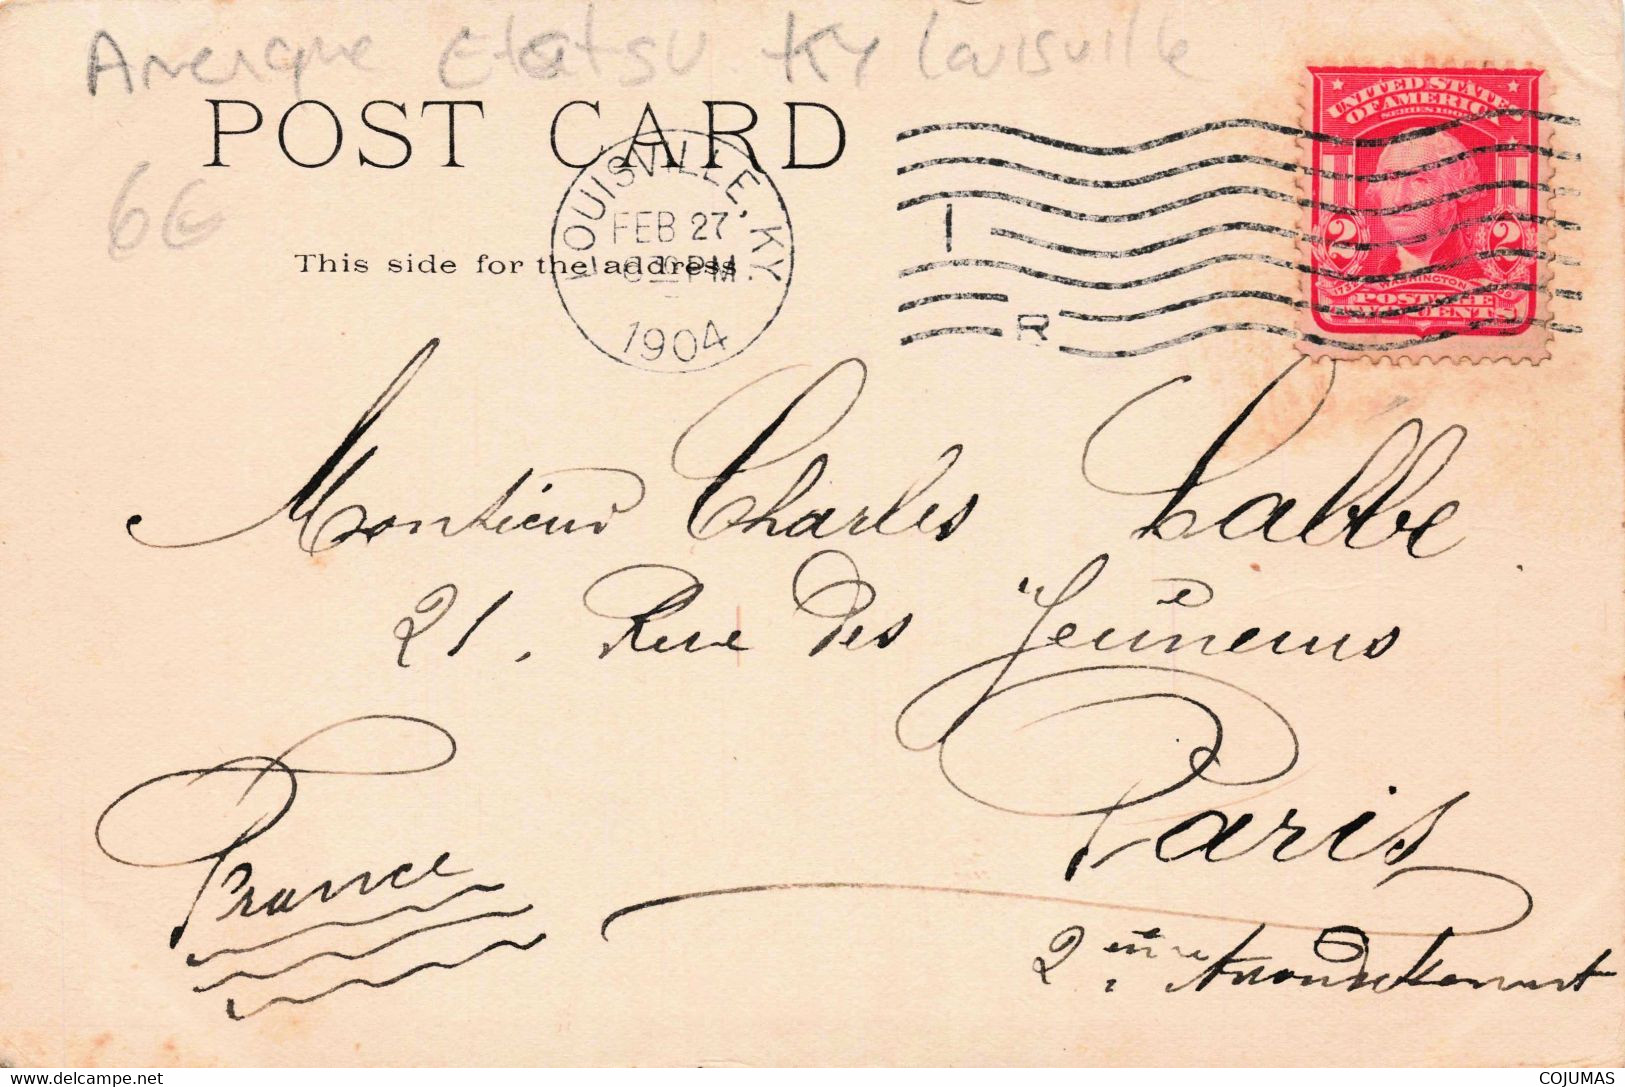 Amerique Etatsu KY Louisville
POST CARD
6€
This side for the address.
LOUISVILLE, KY.
FEB 27
PM
1904
I
R
UNITED STATES
OF AMERICA
SERIES 1902
2 2
1732 WASHINGTON 1799
POSTAGE
TWO CENTS
Monsieur Charles Labbe
21. Rue des Jeûneurs
Paris
France
2.ème Arrondissement
www.delcampe.net
COJUMAS